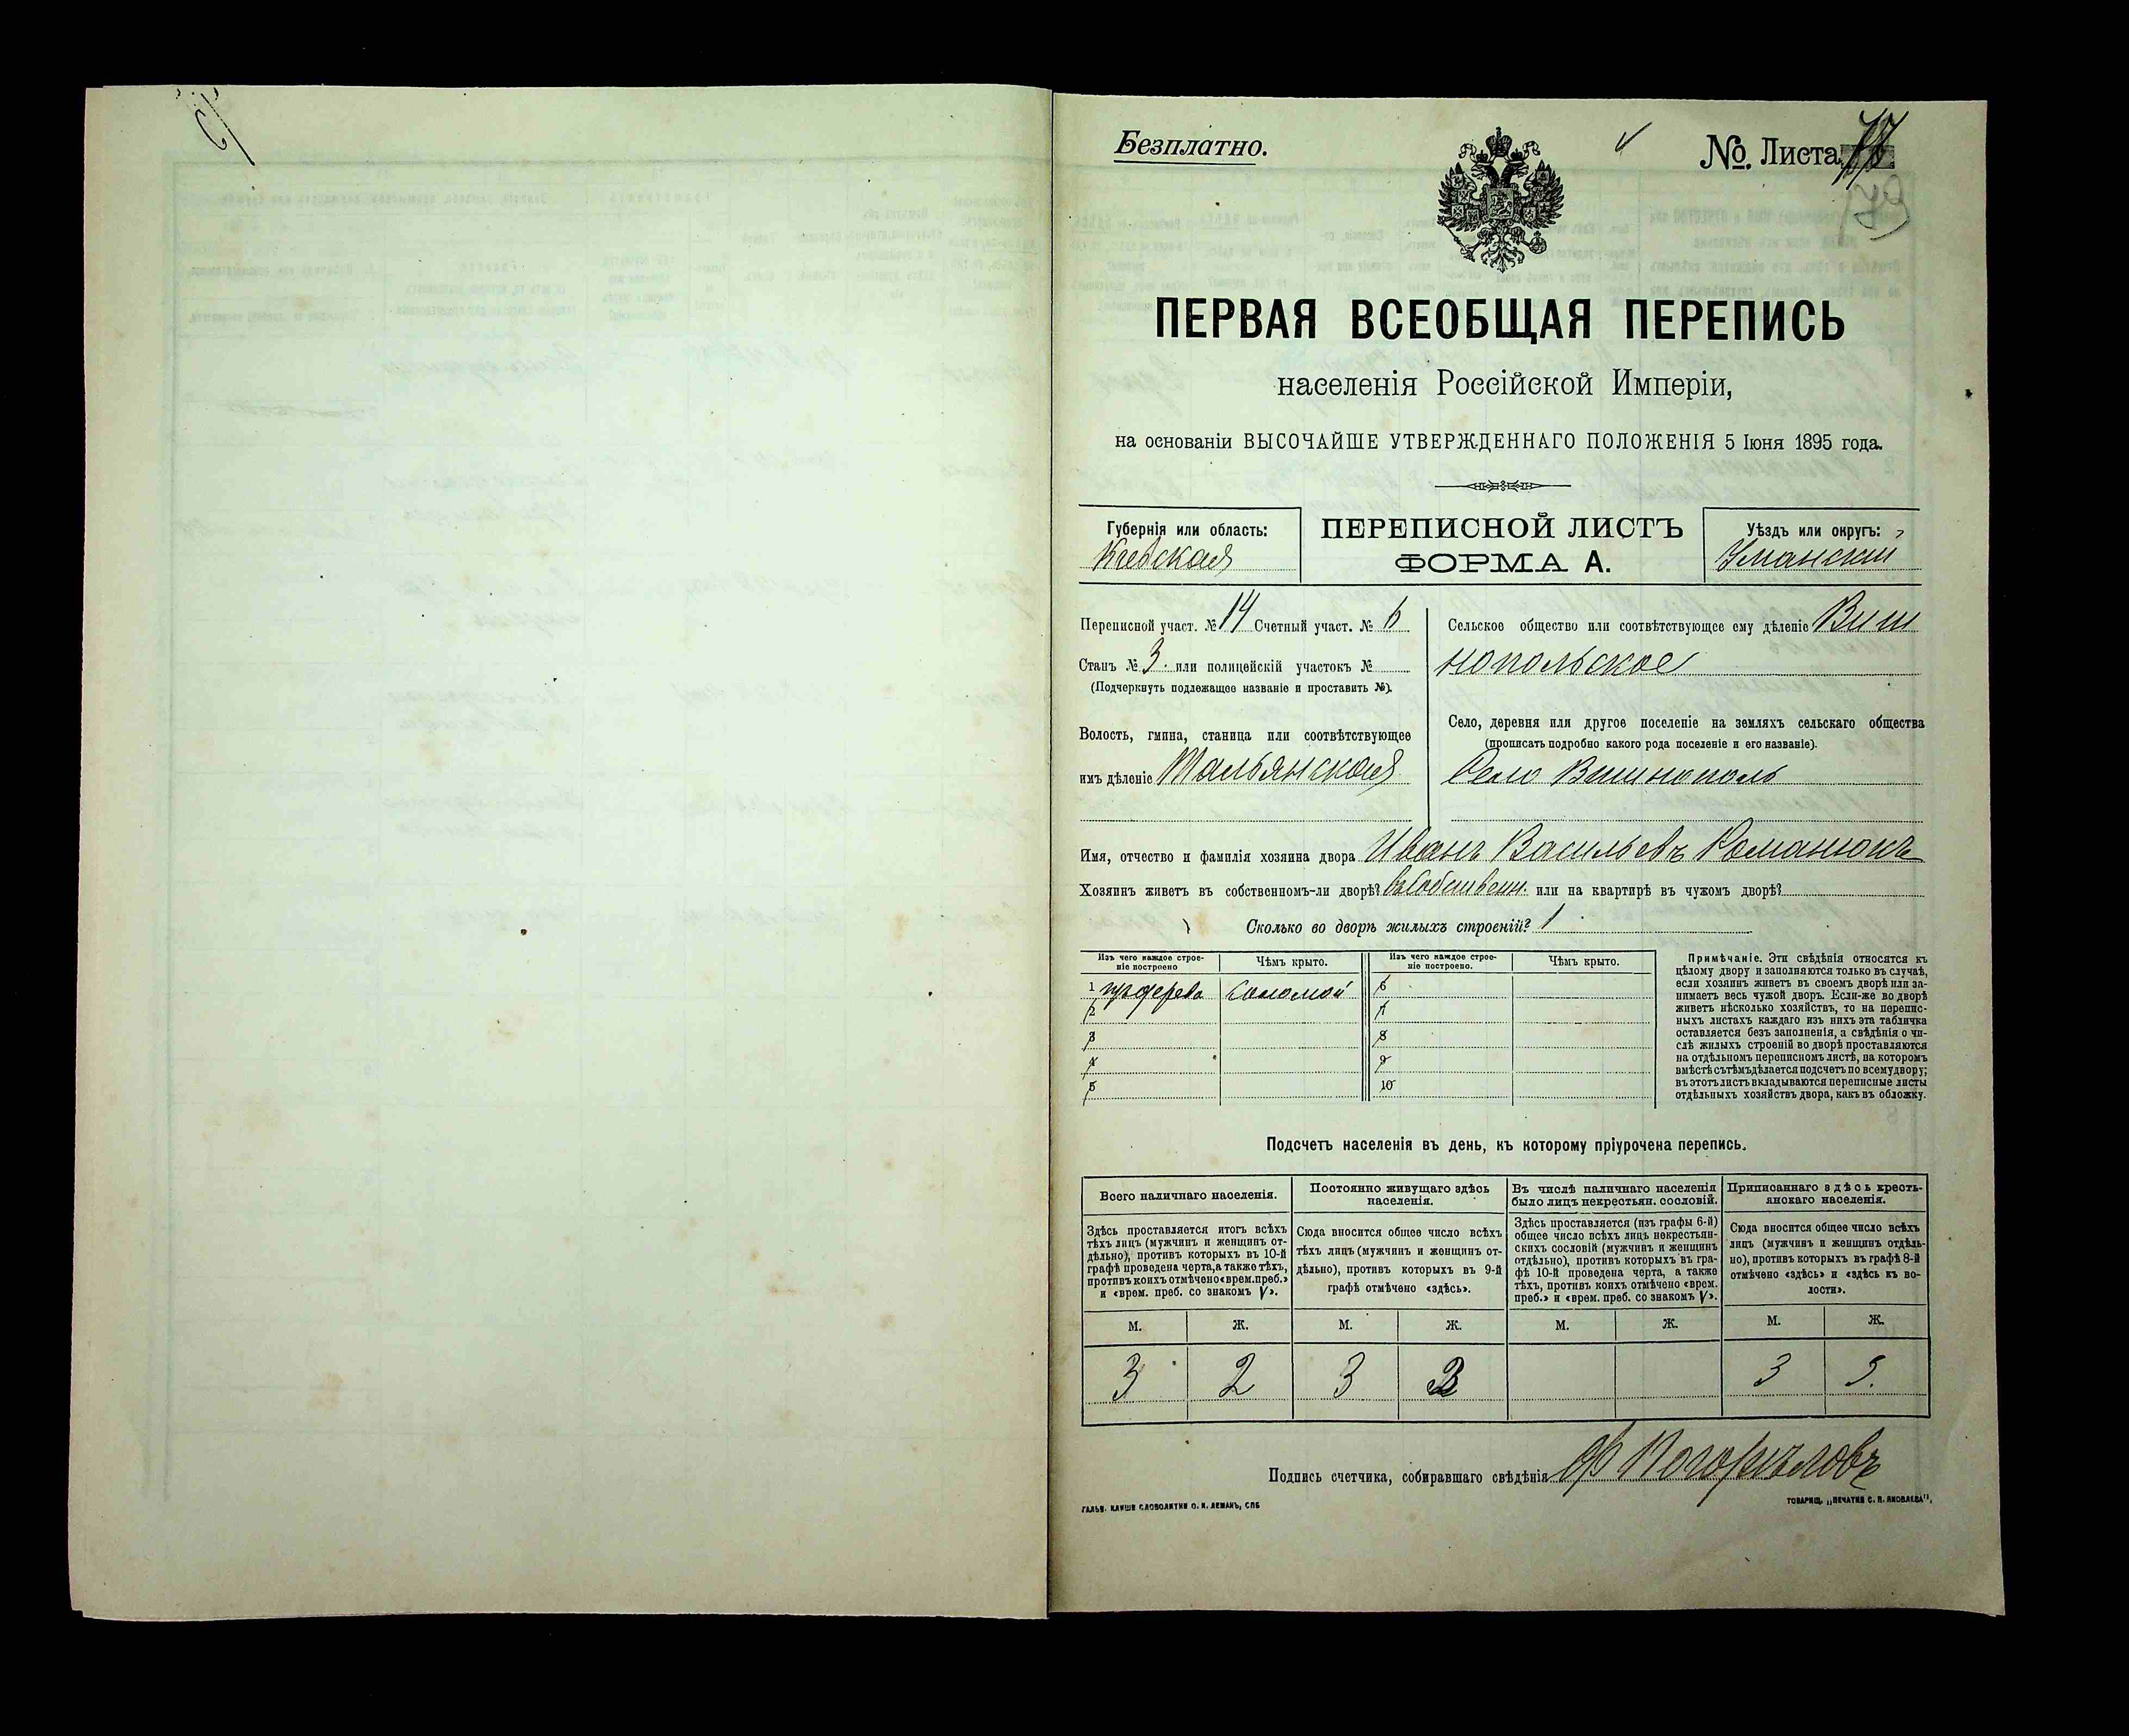 Безплатно.
№. Листа
79
ПЕРВАЯ ВСЕОБЩАЯ ПЕРЕПИСЬ
населенія Россійской Имперіи,
на основаніи ВЫСОЧАЙШЕ УТВЕРЖДЕННАГО ПОЛОЖЕНІЯ 5 Іюня 1895 года.
Губернія или область:
Кіевская
ПЕРЕПИСНОЙ ЛИСТЪ
ФОРМА А.
Уѣздъ или округъ:
Уманскій
Переписной участ. № 14 Счетный участ. № 6
Станъ № 3. или полицейскій участокъ №
(Подчеркнуть подлежащее названіе и проставить №).
Волость, гмина, станица или соотвѣтствующее
имъ дѣленіе Тальянская
Сельское общество или соотвѣтствующее ему дѣленіе Виш
нопольское
Село, деревня или другое поселеніе на земляхъ сельскаго общества
(прописать подробно какого рода поселеніе и его названіе).
Село Вишнополь
Имя, отчество и фамилія хозяина двора Иванъ Васильевъ Романюкъ
Хозяинъ живетъ въ собственномъ-ли дворѣ? въ собственн. или на квартирѣ въ чужомъ дворѣ?
Сколько во дворѣ жилыхъ строеній? 1
Изъ чего каждое строе-
ніе построено
Чѣмъ крыто.
Изъ чего каждое строе-
ніе построено.
Чѣмъ крыто.
1 изъ дерева соломой 6
2 7
3 8
4 9
5 10
Примѣчаніе. Эти свѣдѣнія относятся къ
цѣлому двору и заполняются только въ случаѣ,
если хозяинъ живетъ въ своемъ дворѣ или за-
нимаетъ весь чужой дворъ. Если-же во дворѣ
живетъ нѣсколько хозяйствъ, то на перепис-
ныхъ листахъ каждаго изъ нихъ эта табличка
оставляется безъ заполненія, а свѣдѣнія о чи-
слѣ жилыхъ строеній во дворѣ проставляются
на отдѣльномъ переписномъ листѣ, на которомъ
вмѣстѣ съ тѣмъ дѣлается подсчетъ по всему двору;
въ этотъ листъ вкладываются переписные листы
отдѣльныхъ хозяйствъ двора, какъ въ обложку.
Подсчетъ населенія въ день, къ которому пріурочена перепись.
Всего наличнаго населенія.
Здѣсь проставляется итогъ всѣхъ
тѣхъ лицъ (мужчинъ и женщинъ от-
дѣльно), противъ которыхъ въ 10-й
графѣ проведена черта, а также тѣхъ,
противъ коихъ отмѣчено «врем. преб.»
и «врем. преб. со знакомъ V».
Постоянно живущаго здѣсь
населенія.
Сюда вносится общее число всѣхъ
тѣхъ лицъ (мужчинъ и женщинъ от-
дѣльно), противъ которыхъ въ 9-й
графѣ отмѣчено «здѣсь».
Въ числѣ наличнаго населенія
было лицъ некрестьян. сословій.
Здѣсь проставляется (изъ графы 6-й)
общее число всѣхъ лицъ некрестьян-
скихъ сословій (мужчинъ и женщинъ
отдѣльно), противъ которыхъ въ гра-
фѣ 10-й проведена черта, а также
тѣхъ, противъ коихъ отмѣчено «врем.
преб.» и «врем. преб. со знакомъ V».
Приписаннаго здѣсь кресть-
янскаго населенія.
Сюда вносится общее число всѣхъ
лицъ (мужчинъ и женщинъ отдѣль-
но), противъ которыхъ въ графѣ 8-й
отмѣчено «здѣсь» и «здѣсь къ во-
лости».
М. Ж. М. Ж. М. Ж. М. Ж.
3 2 3 2 3 3.
Подпись счетчика, собиравшаго свѣдѣнія Погорѣловъ
ГАЛЬВ. КЛИШЕ СЛОВОЛИТНИ О. И. ЛЕМАНЪ, СПБ
ТОВАРИЩ. „ПЕЧАТНЯ С. П. ЯКОВЛЕВА“.